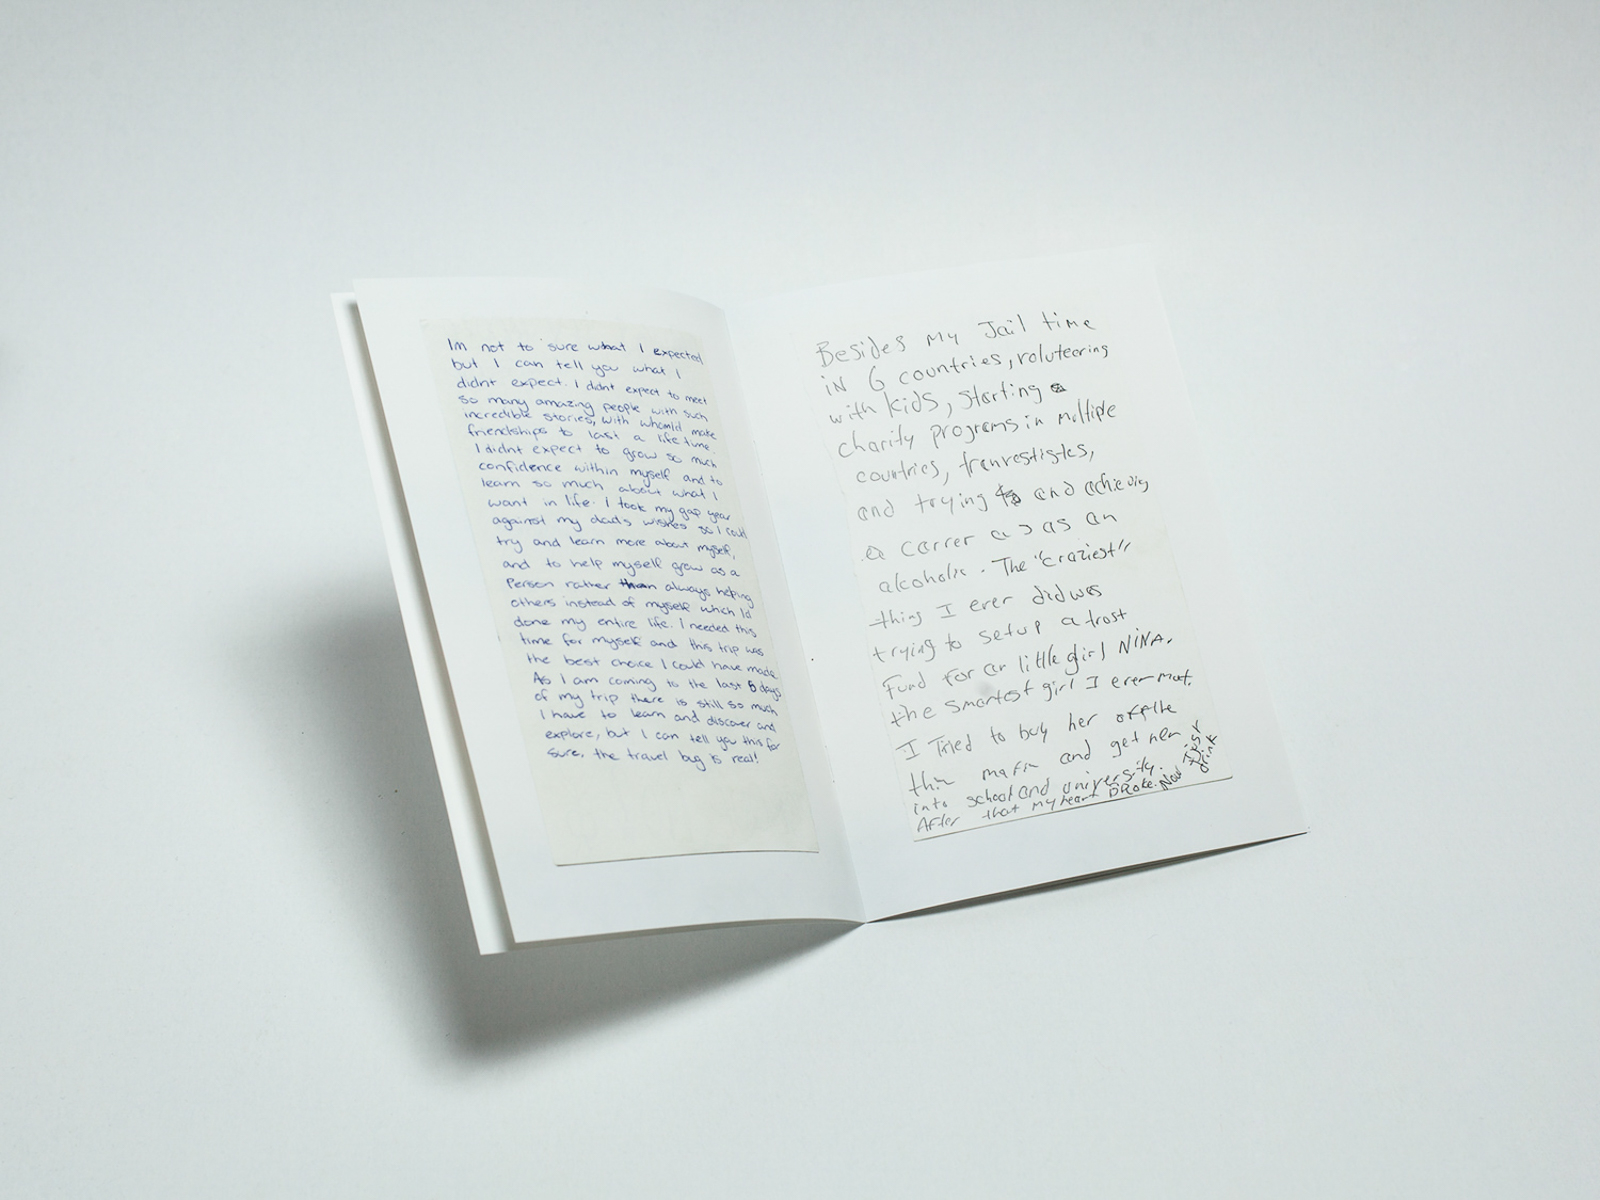 Im not to sure what I expected
but I can tell you what I
didnt expect. I didnt expect to meet
so many amazing people with such
incredible stories, with whom Id make
friendships to last a life time.
I didnt expect to grow so much
confidence within myself and to
learn so much about what I
want in life. I took my gap year
against my dads wishes so I could
try and learn more about myself,
and to help myself grow as a
Person rather than always helping
others instead of myself which Id
done my entire life. I needed this
time for myself and this trip was
the best choice I could have made.
As I am coming to the last 5 days
of my trip there is still so much
I have to learn and discover and
explore, but I can tell you this for
sure, the travel bug is real!
Besides my Jail time
in 6 countries, voluteering
with kids, starting
charity programs in multiple
countries, tranvestistes,
and trying and achieving
a carrer as as an
alcoholic. The "craziest"
thing I ever did was
trying to setup a trost
Fund for a little girl NINA.
the smartest girl I ever met.
I Tried to buy her off the
thi mafia and get her
into school and university.
After that my heart Broke. Now I Just
drink